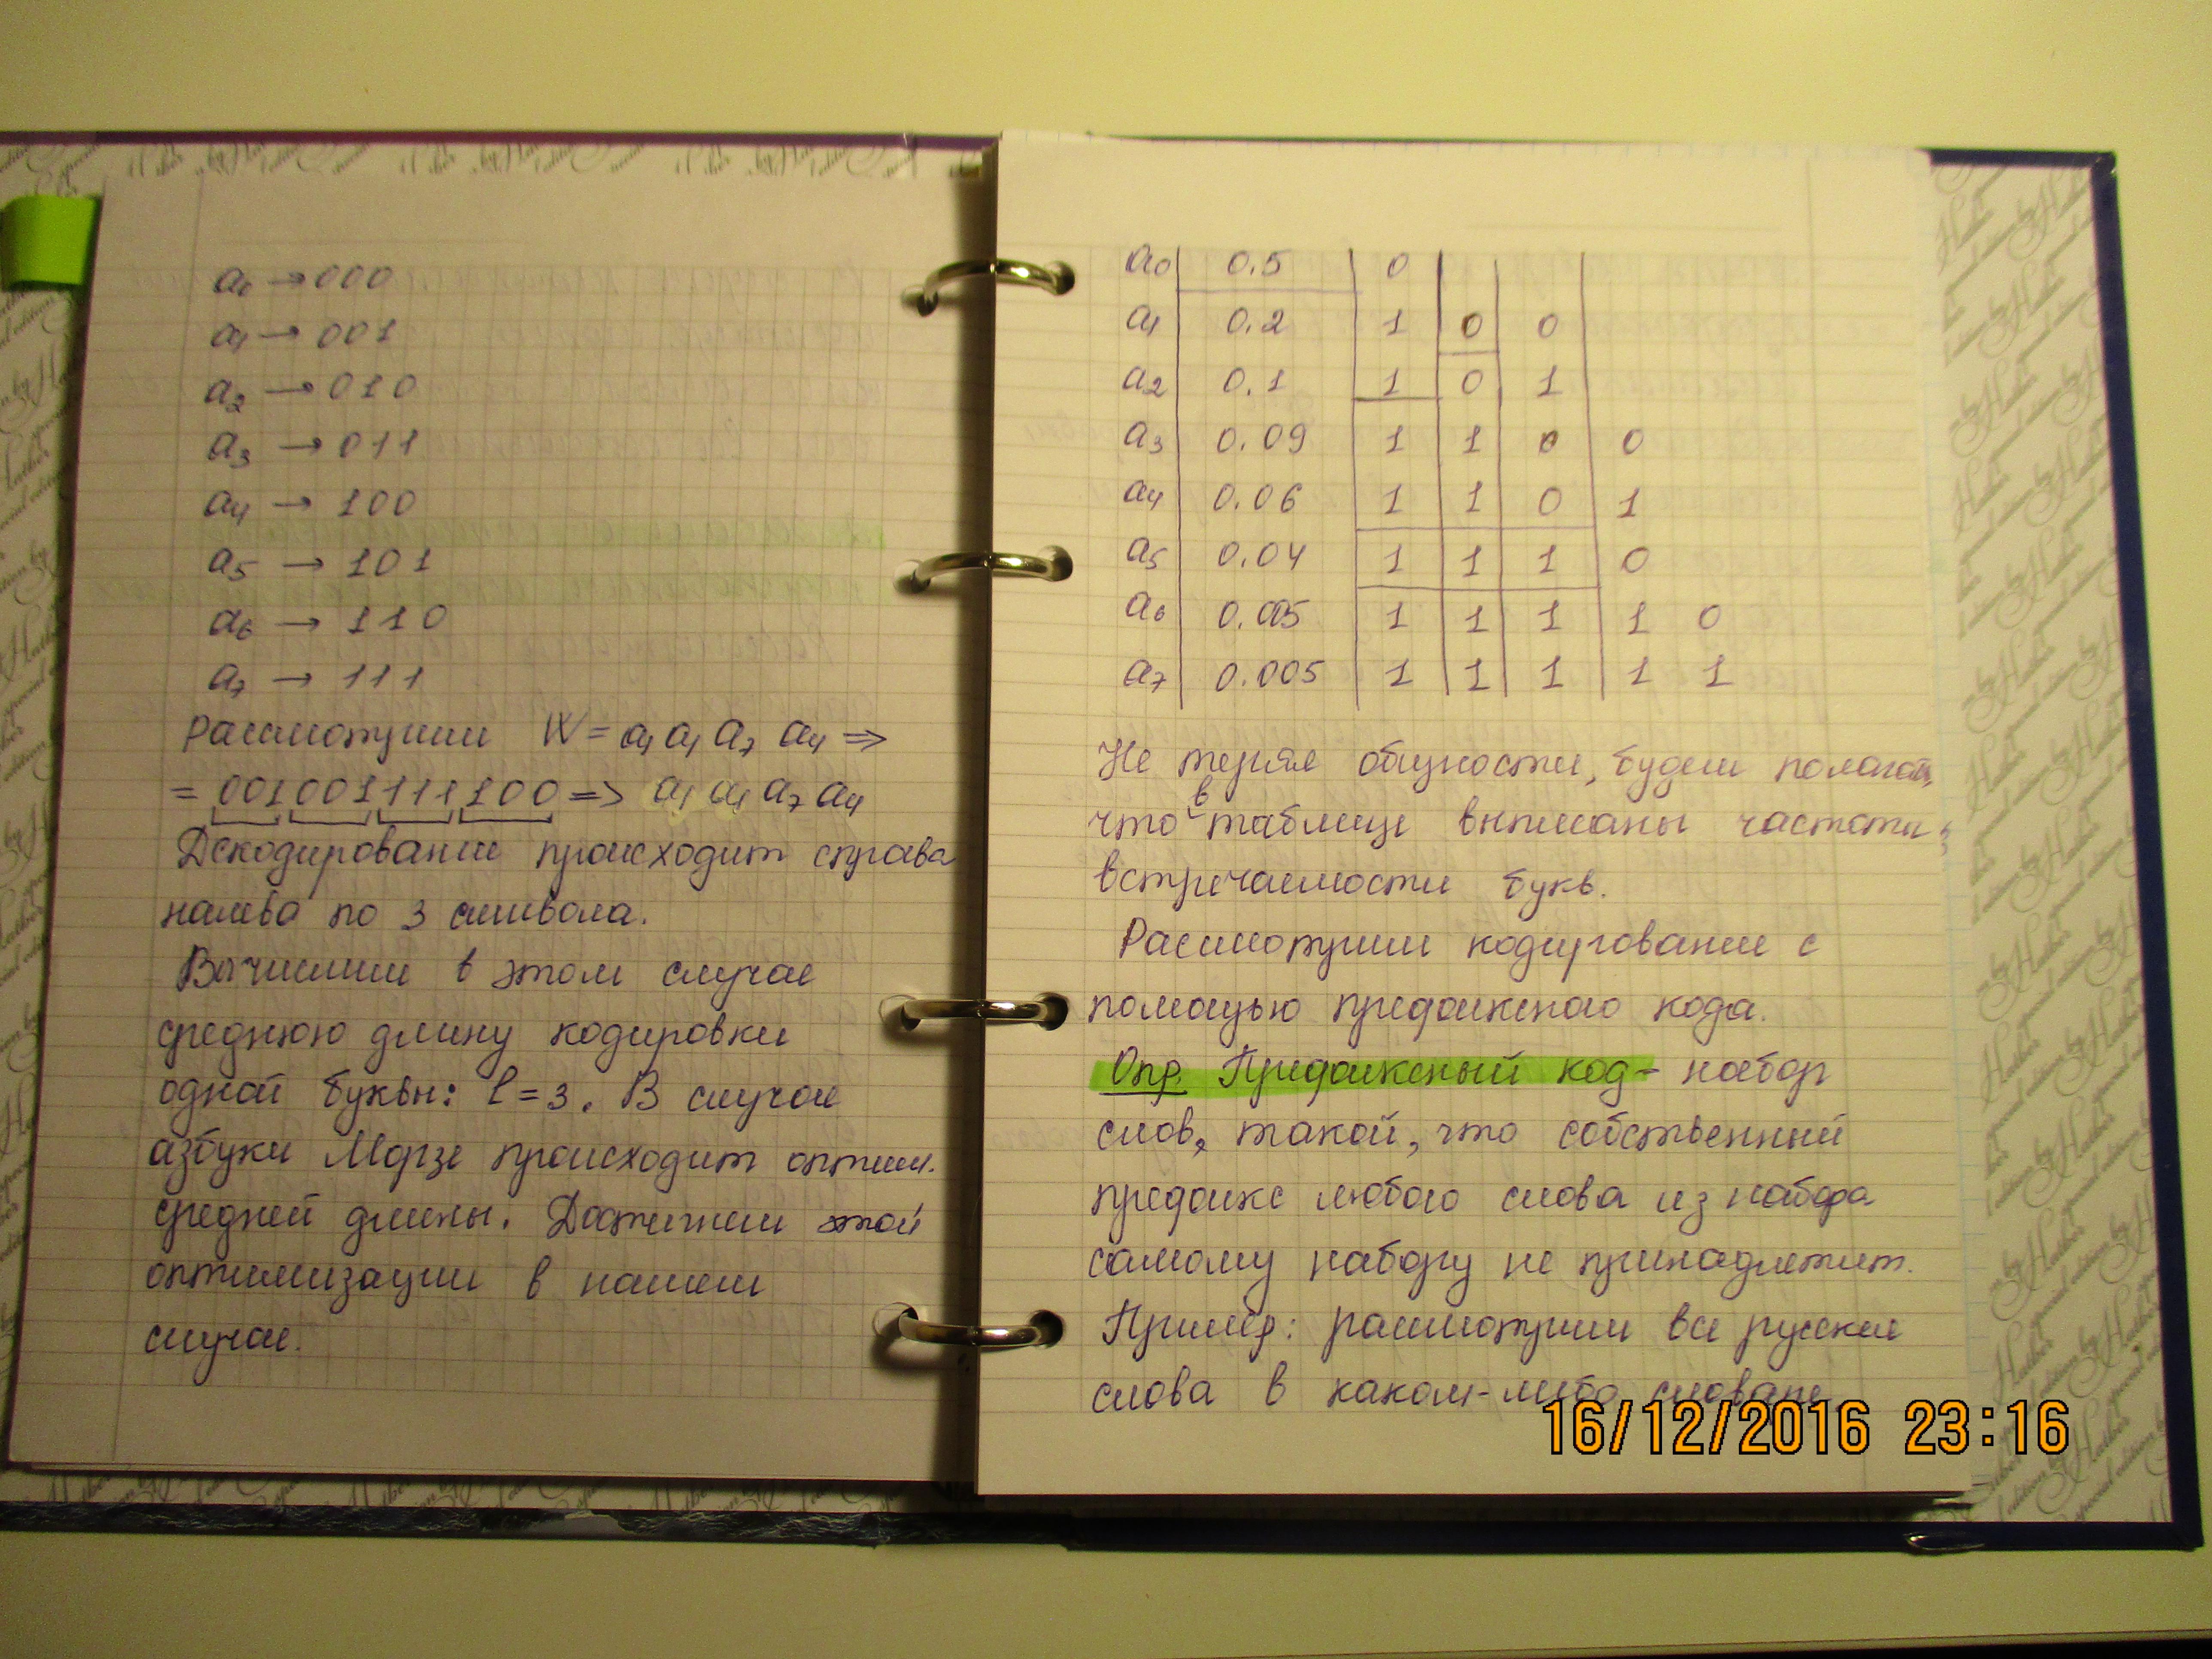 a0 → 000
a1 → 001
a2 → 010
a3 → 011
a4 → 100
a5 → 101
a6 → 110
a7 → 111
Рассмотрим W = a1 a1 a7 a4 =>
= 001001111100 => a1 a1 a7 a4
Декодирование происходит справа
налево по 3 символа.
Вычислим в этом случае
среднюю длину кодировки
одной буквы: l = 3. В случае
азбуки Морзе происходит оптим.
средней длины. Достигнем этой
оптимизации в нашем
случае.
a0 0.5 0
a1 0.2 1 0 0
a2 0.1 1 0 1
a3 0.09 1 1 0 0
a4 0.06 1 1 0 1
a5 0.04 1 1 1 0
a6 0.005 1 1 1 1 0
a7 0.005 1 1 1 1 1
Не теряя общности, будем полагать,
что в таблице выписаны частоты
встречаемости букв.
Рассмотрим кодирование с
помощью префиксного кода.
Опр. Префиксный код - набор
слов, такой, что собственный
префикс любого слова из набора
самому набору не принадлежит.
Пример: рассмотрим все русские
слова в каком-либо словаре.
16/12/2016 23:16